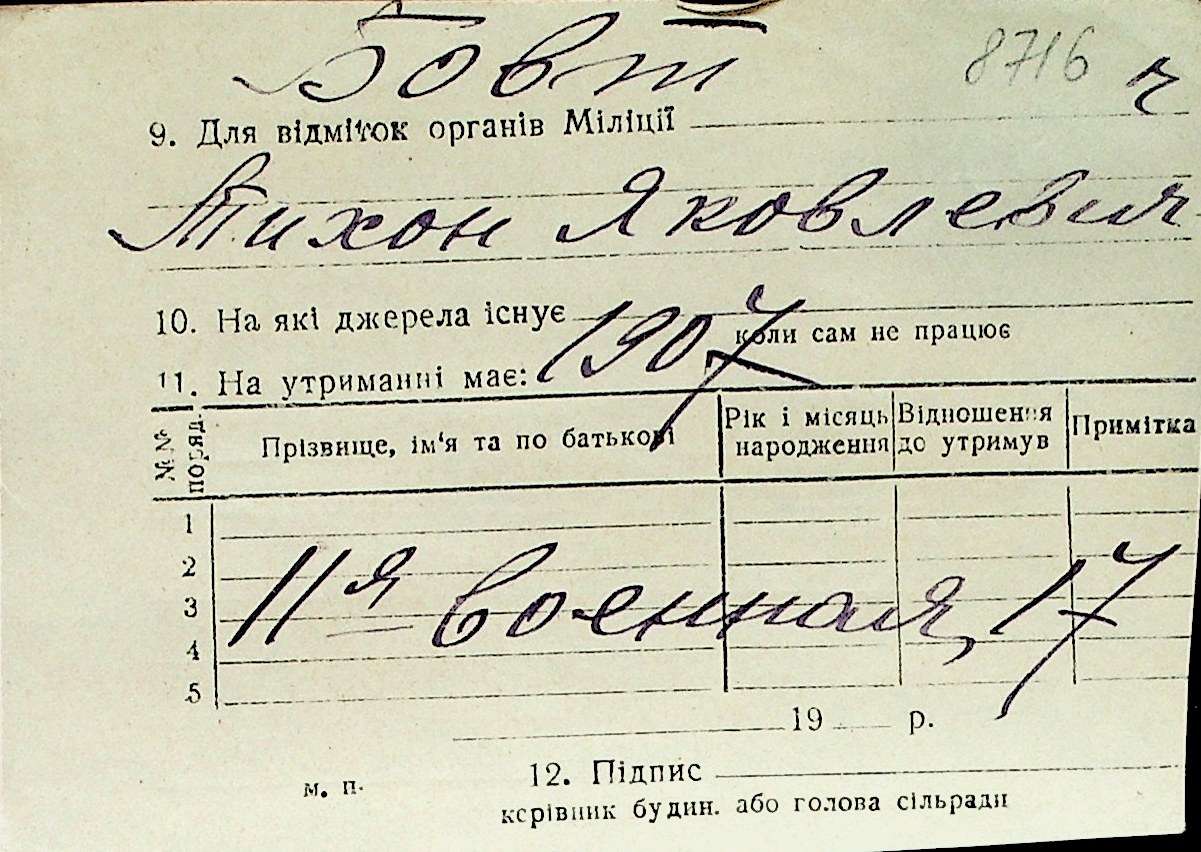 Бовт 8716 ч
9. Для відміток органів Міліції
Тихон Яковлевич
10. На які джерела існує
коли сам не працює
1907
11. На утриманні має:
№№ поряд. Прізвище, ім‘я та по батькові Рік і місяць народження Відношення до утримув Примітка
1
2
11я военная, 17
3
4
5
19 р.
м. п. 12. Підпис
керівник будин. або голова сільради